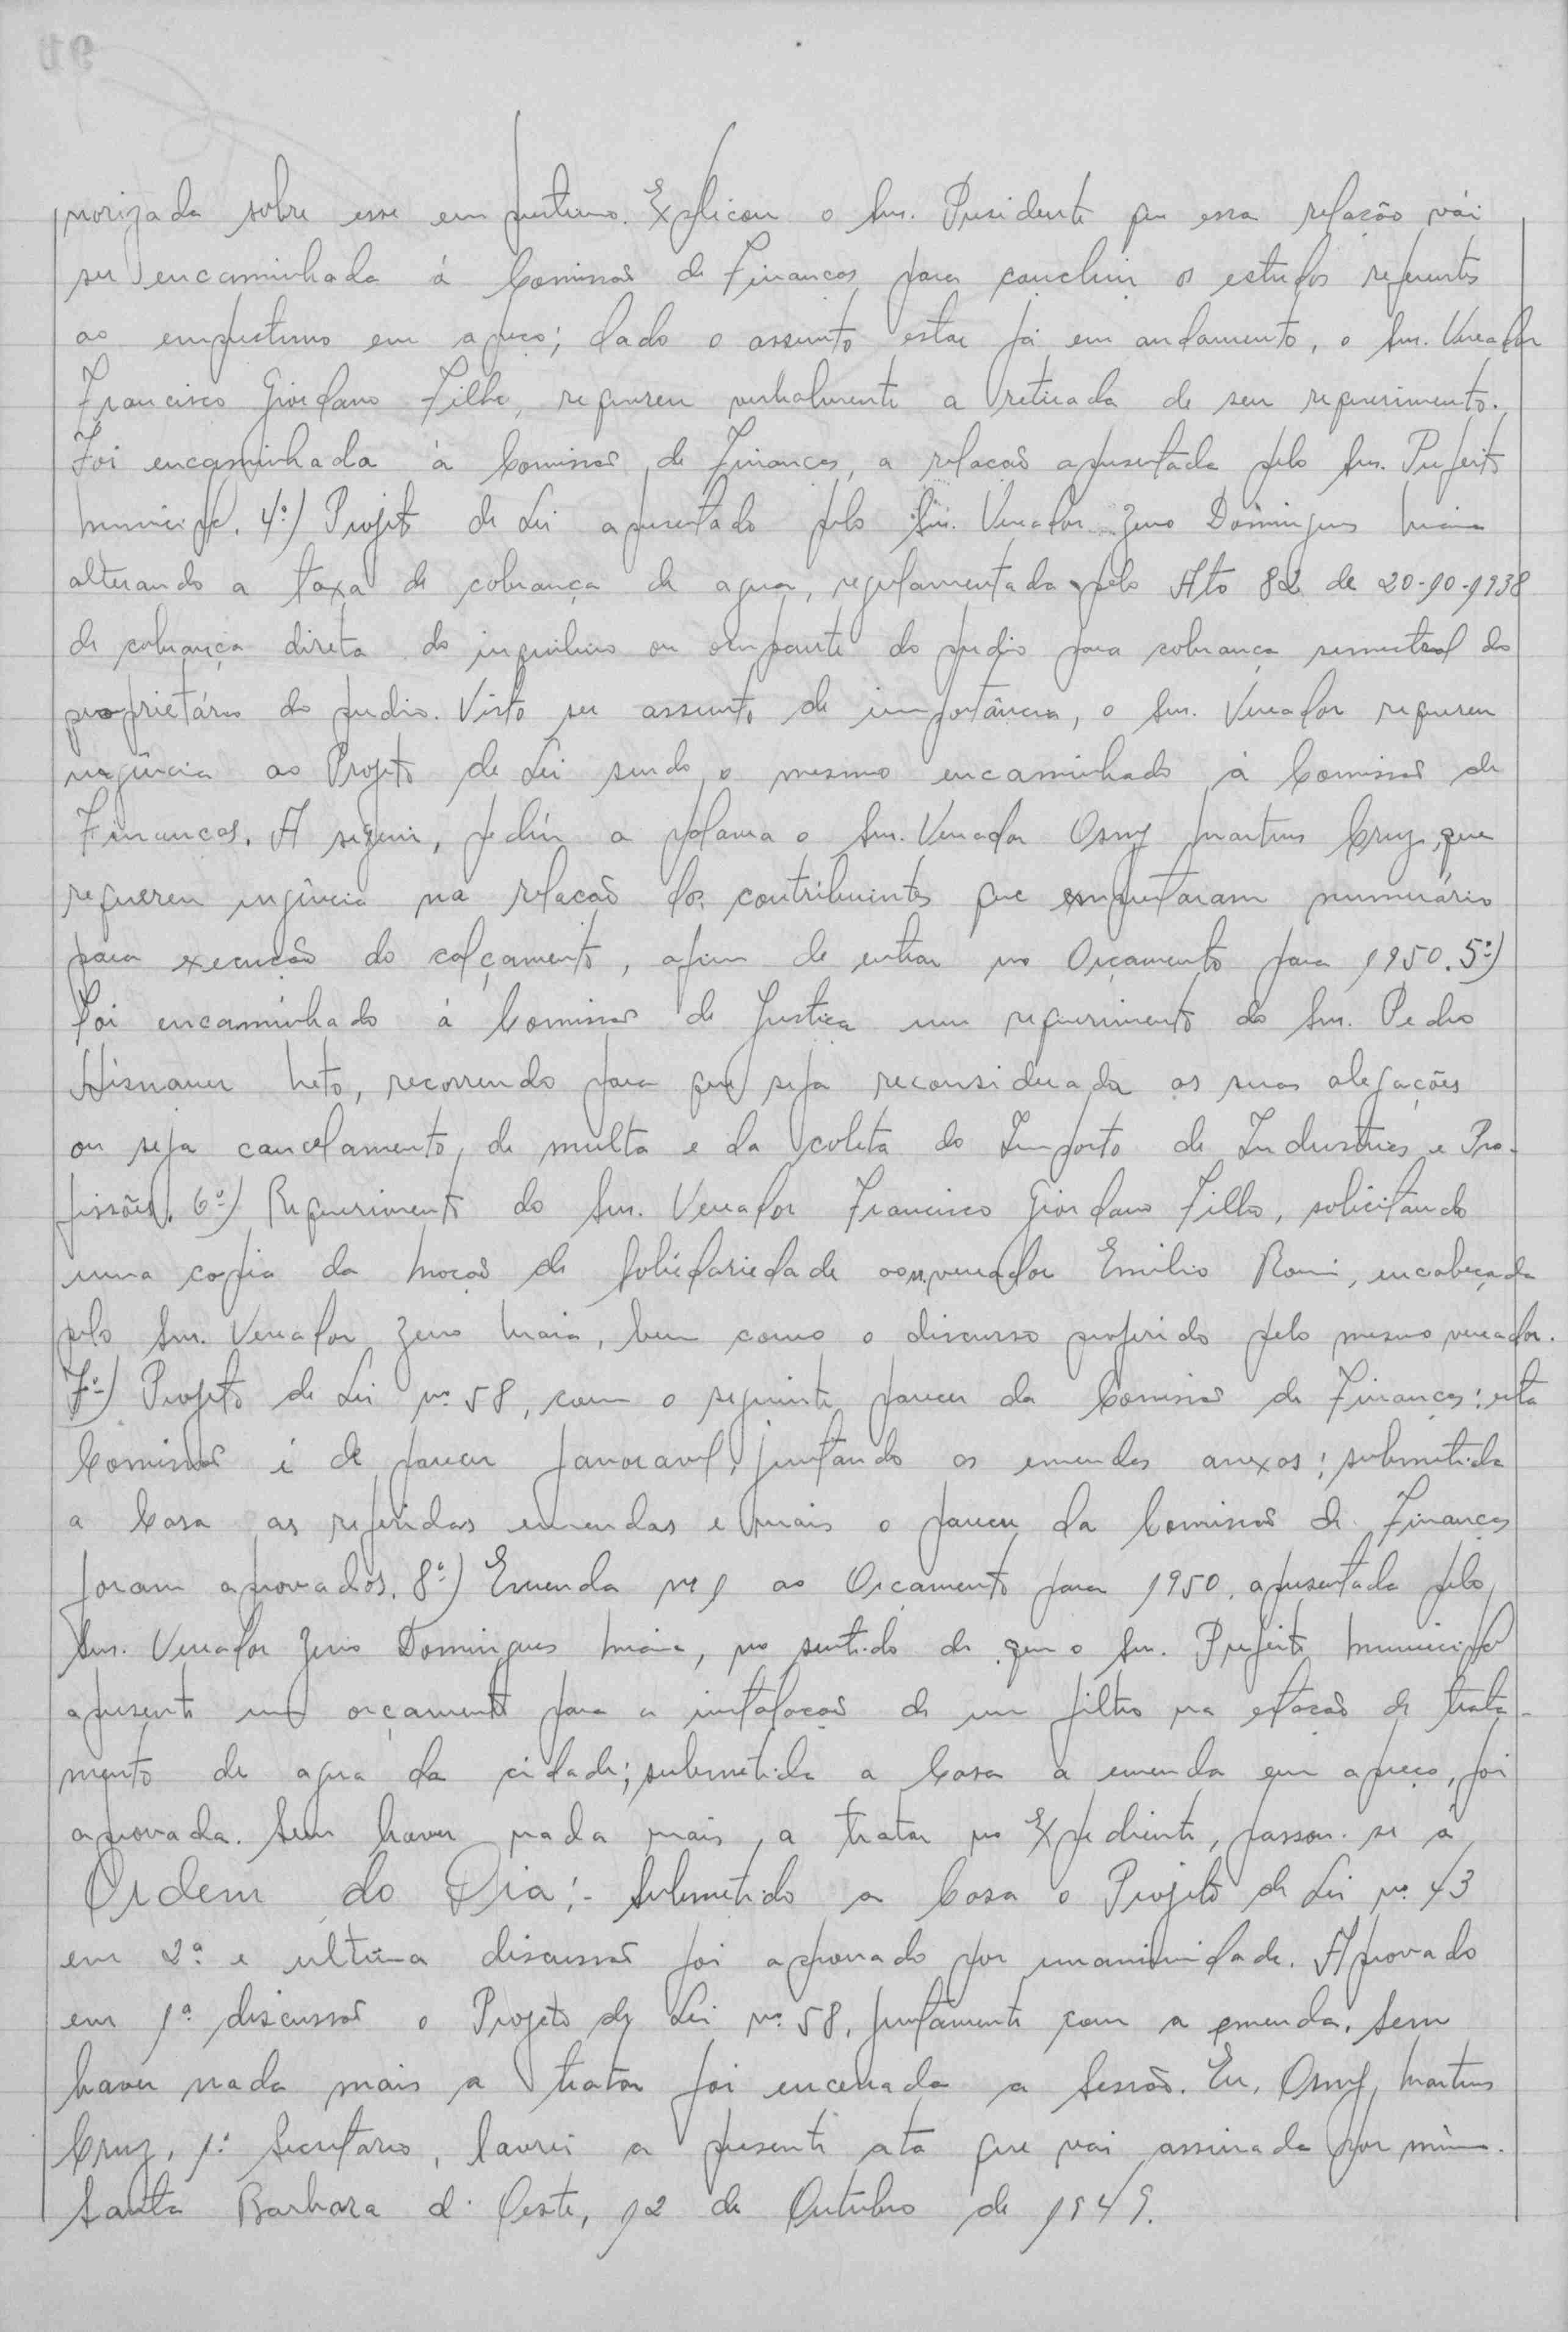 norizada sobre esse emprestimo. Explicou o Snr. Presidente que essa relação vái
ser encaminhada á Comissão de Finanças para concluir os estudos referentes
ao emprestimo em apreço; dado o assunto estar já em andamento, o Snr. Vereador
Francisco Giordano Filho, requereu verbalmente a retirada de seu requerimento.
Foi encaminhada á Comissão de Finanças, a relacão apresentada pelo Snr. Prefeito
Municipal. 4º) Projeto de Lei apresentado pelo Snr. Vereador Zeno Domingues Maia
alterando a taxa de cobrança de agua, regulamentada pelo Ato 82 de 20-10-1938
de cobrança direta do inquilino ou ocupante do predio para cobrança semestral do
proprietário do predio. Visto ser assunto de importância, o Snr. Vereador requereu
urgência ao Projeto de Lei sendo o mesmo encaminhado á Comissão de
Finanças. A seguir, pediu a palavra o Snr. Vereador Osny Martins Cruz, que
requereu urgência na relacão dos contribuintes que emprestaram numerário
para execução do calçamento, afim de entrar no Orçamento para 1950. 5º)
Foi encaminhado á Comissão de Justiça um requerimento do Snr. Pedro
Hismauer Neto, recorrendo para que seja reconsiderada as suas alegações
ou seja cancelamento, de multa e da coleta do Imposto de Industrias e Pro-
fissões. 6º) Requerimento do Snr. Vereador Francisco Giordano Filho, solicitando
uma copia da Mocão de Solidariedade ao snr. vereador Emilio Romi, encabeçada
pelo Snr. Vereador Zeno Maia, bem como o discurso proferido pelo mesmo vereador.
7º) Projeto de Lei nº 58, com o seguinte parecer da Comissão de Finanças: esta
Comissão é de parecer favoravel, juntando as emendas anexas; submetida
a Casa as referidas emendas e mais o parecer da Comissão de Finanças
foram aprovados. 8º) Emenda nº 1 ao Orçamento para 1950, apresentada pelo
Snr. Vereador Zeno Domingues Maia, no sentido de que o Snr. Prefeito Municipal
apresente um orçamento para a instalacão de um filtro na estacão de trata-
mento de agua da cidade; submetida a Casa a emenda em apreço, foi
aprovada. Sem haver nada mais, a tratar no Expediente, passou-se á
Ordem do Dia:- Submetido a Casa o Projeto de Lei nº 43
em 2ª e ultima discussão foi aprovado por unanimidade. Aprovado
em 1ª discussão o Projeto de Lei nº 58, juntamente com a emenda. Sem
haver nada mais a tratar foi encerrada a Sessão. Eu, Osny Martins
Cruz, 1º Secretario, lavrei a presente ata que vai assinada por mim.
Santa Barbara d'Oeste, 12 de Outubro de 1949.